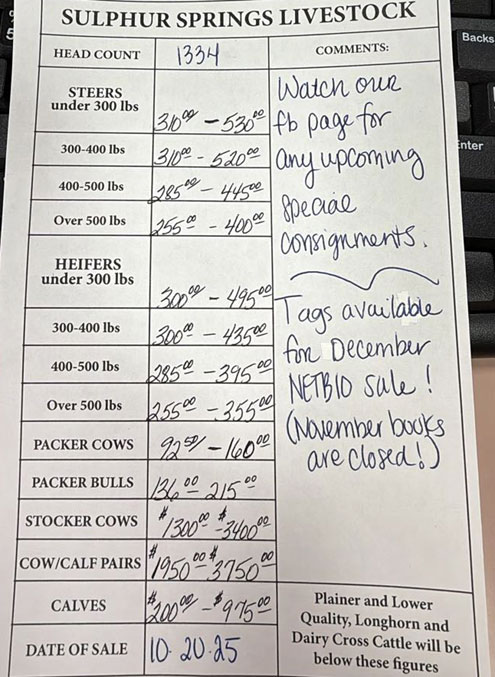 SULPHUR SPRINGS LIVESTOCK
HEAD COUNT 1334
COMMENTS:
STEERS
under 300 lbs 310.00 - 530.00
300-400 lbs 310.00 - 520.00
400-500 lbs 285.00 - 445.00
Over 500 lbs 255.00 - 400.00
HEIFERS
under 300 lbs 300.00 - 495.00
300-400 lbs 300.00 - 435.00
400-500 lbs 285.00 - 395.00
Over 500 lbs 255.00 - 355.00
PACKER COWS 92.50 - 160.00
PACKER BULLS 136.00 - 215.00
STOCKER COWS $1300.00 - $3400.00
COW/CALF PAIRS $1950.00 - $3750.00
CALVES $200.00 - $975.00
DATE OF SALE 10-20-25
Watch our
fb page for
any upcoming
special
consignments.
Tags available
for December
NETBIO sale!
(November books
are closed!)
Plainer and Lower
Quality, Longhorn and
Dairy Cross Cattle will be
below these figures
Backs
Enter